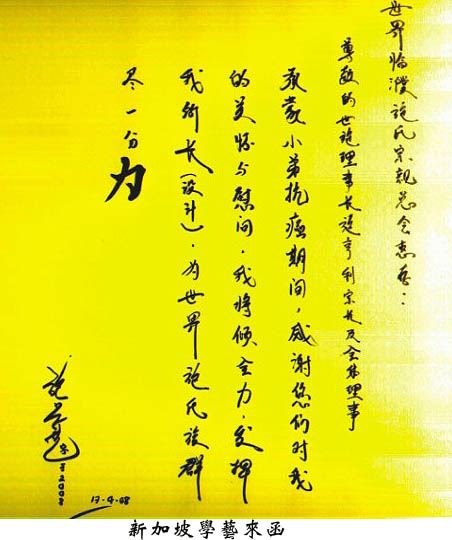 世界临濮施氏宗親总会惠存：
尊敬的世施理事长施亨利宗长及全体理事
承蒙小弟抗癌期间，感谢您们对我
的关怀与慰问，我将倾全力，发挥
我所长（设计），为世界施氏族群
尽一分力
施学艺
字于2008
17-4-08
新加坡學藝來函